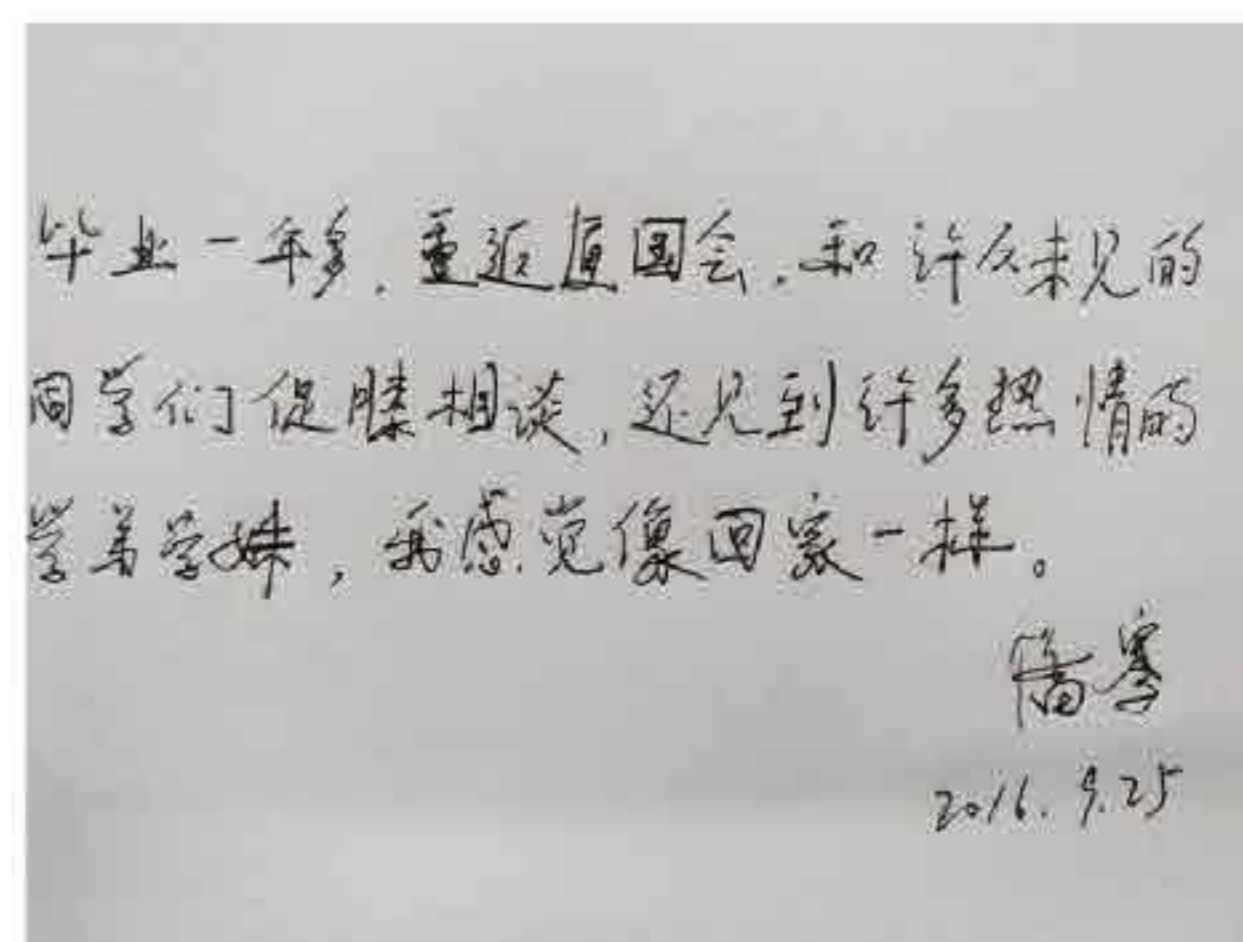 毕业一年多,重返直国会,和许久未见的
同学们促膝相谈,还见到许多热情的
学弟学妹,我感觉像回家一样。
2016.9.25